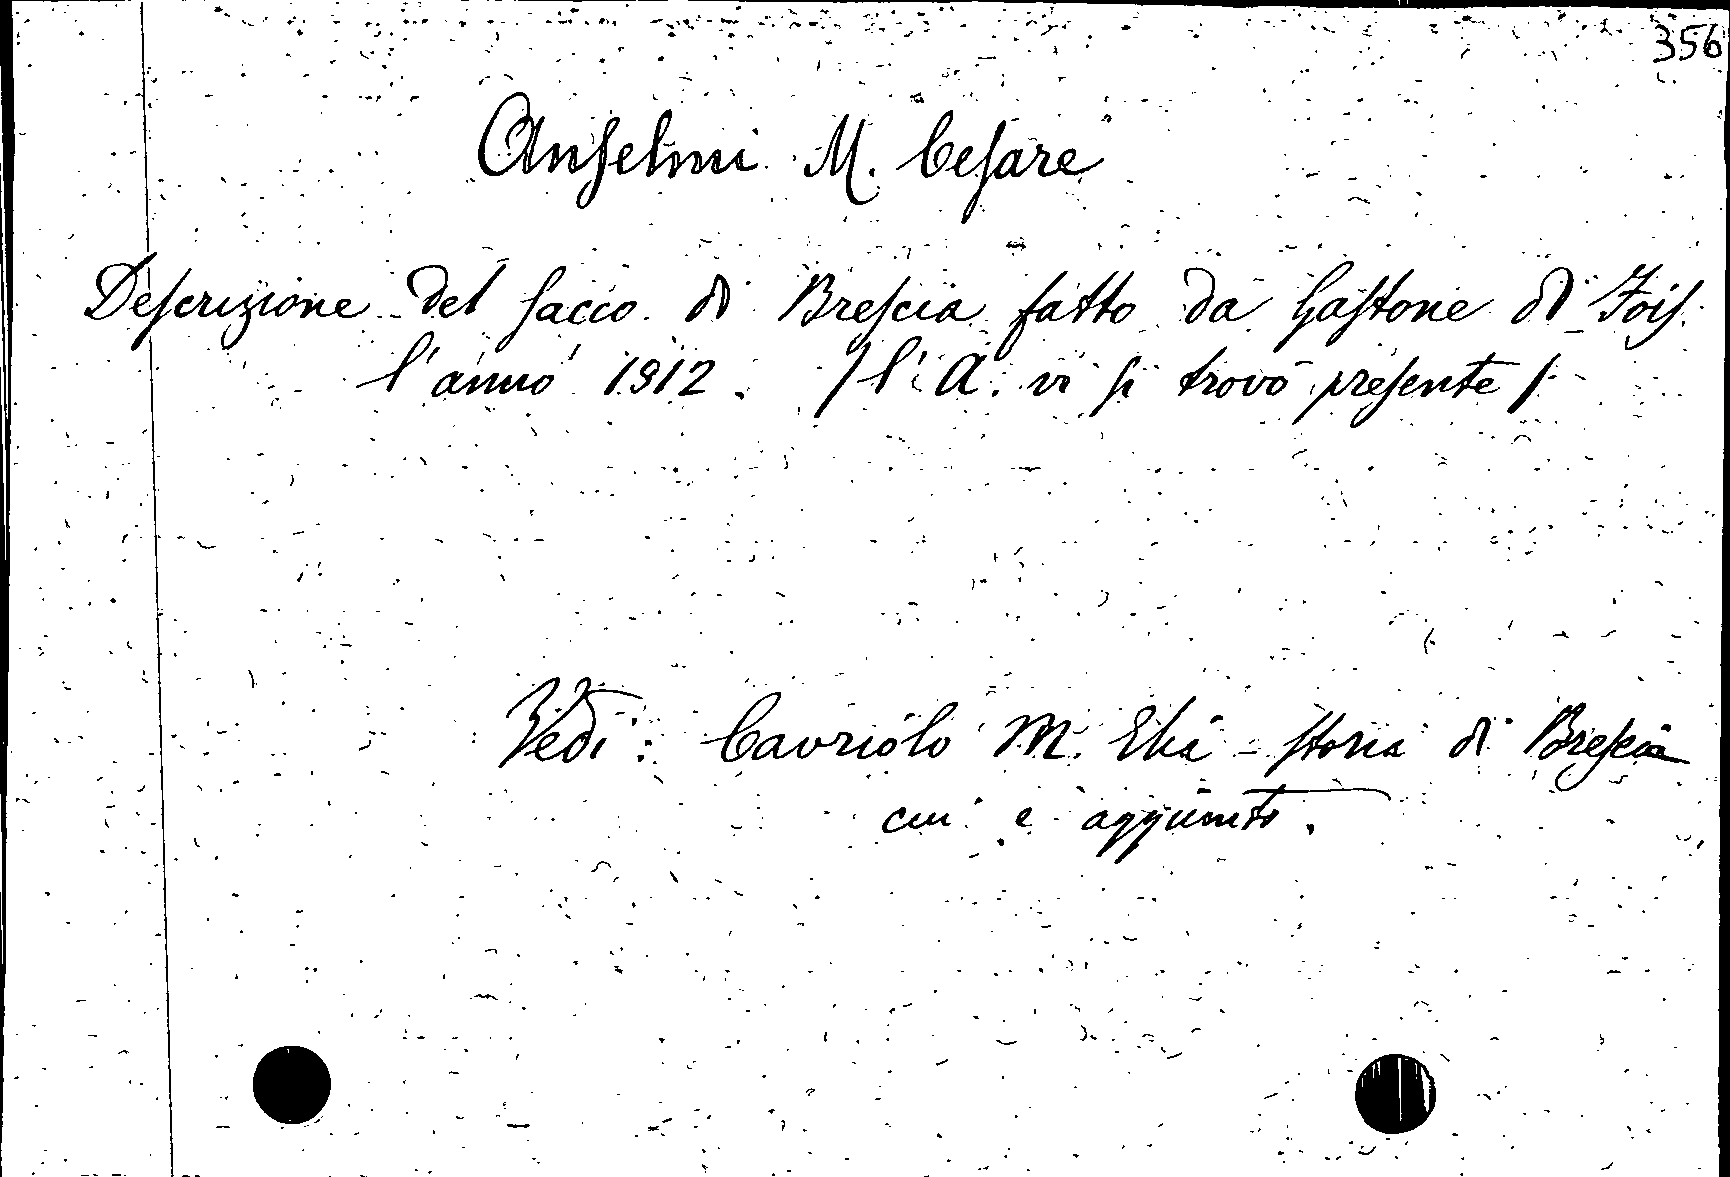 356
Anselmi M. Cesare
Descrizione del sacco di Brescia fatto da Gastone di Fois.
l'anno 1912. /l'A. vi si trovò presente/.
Vedi: Cavriolo M. Elia - storia di Brescia
cui è aggiunto.